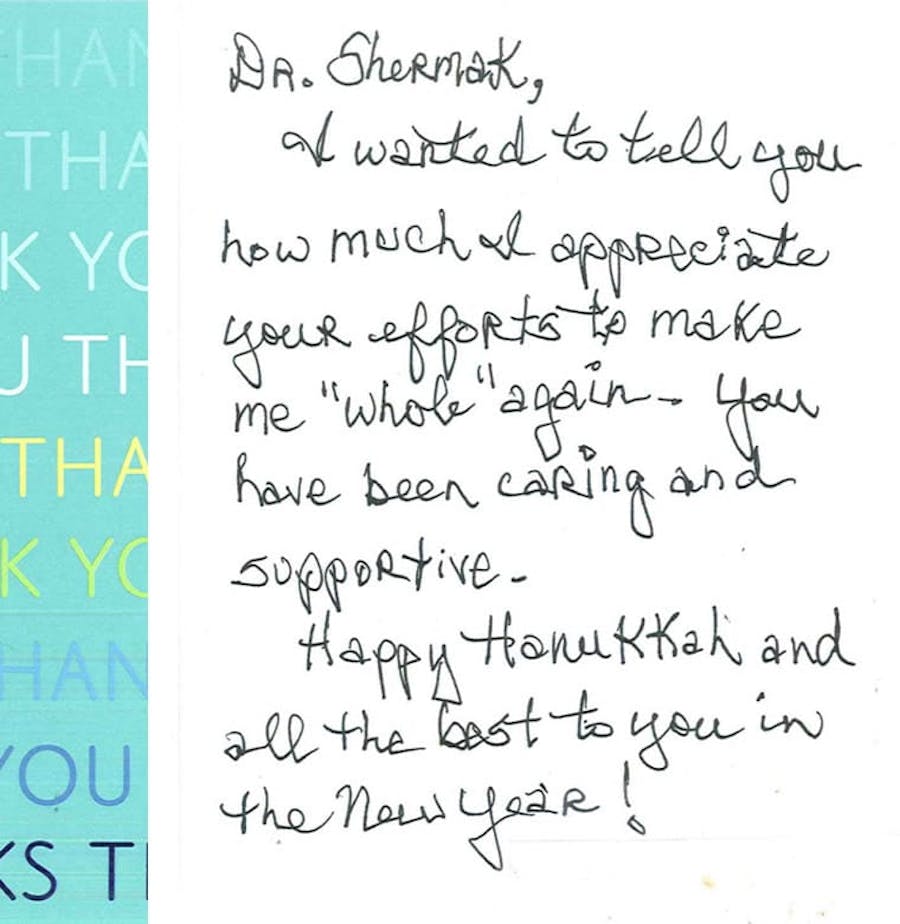 THAN
THA
K YO
U TH
THA
K YO
HAN
YOU
KS T
DR. Shermak,
I wanted to tell you
how much I appreciate
your efforts to make
me "whole" again - You
have been caring and
supportive.
Happy Hanukkah and
all the best to you in
the New Year!